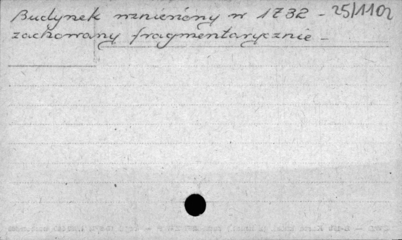 Budynek wzniesiony w 1782 - 25/1102
zachowany fragmentarycznie -